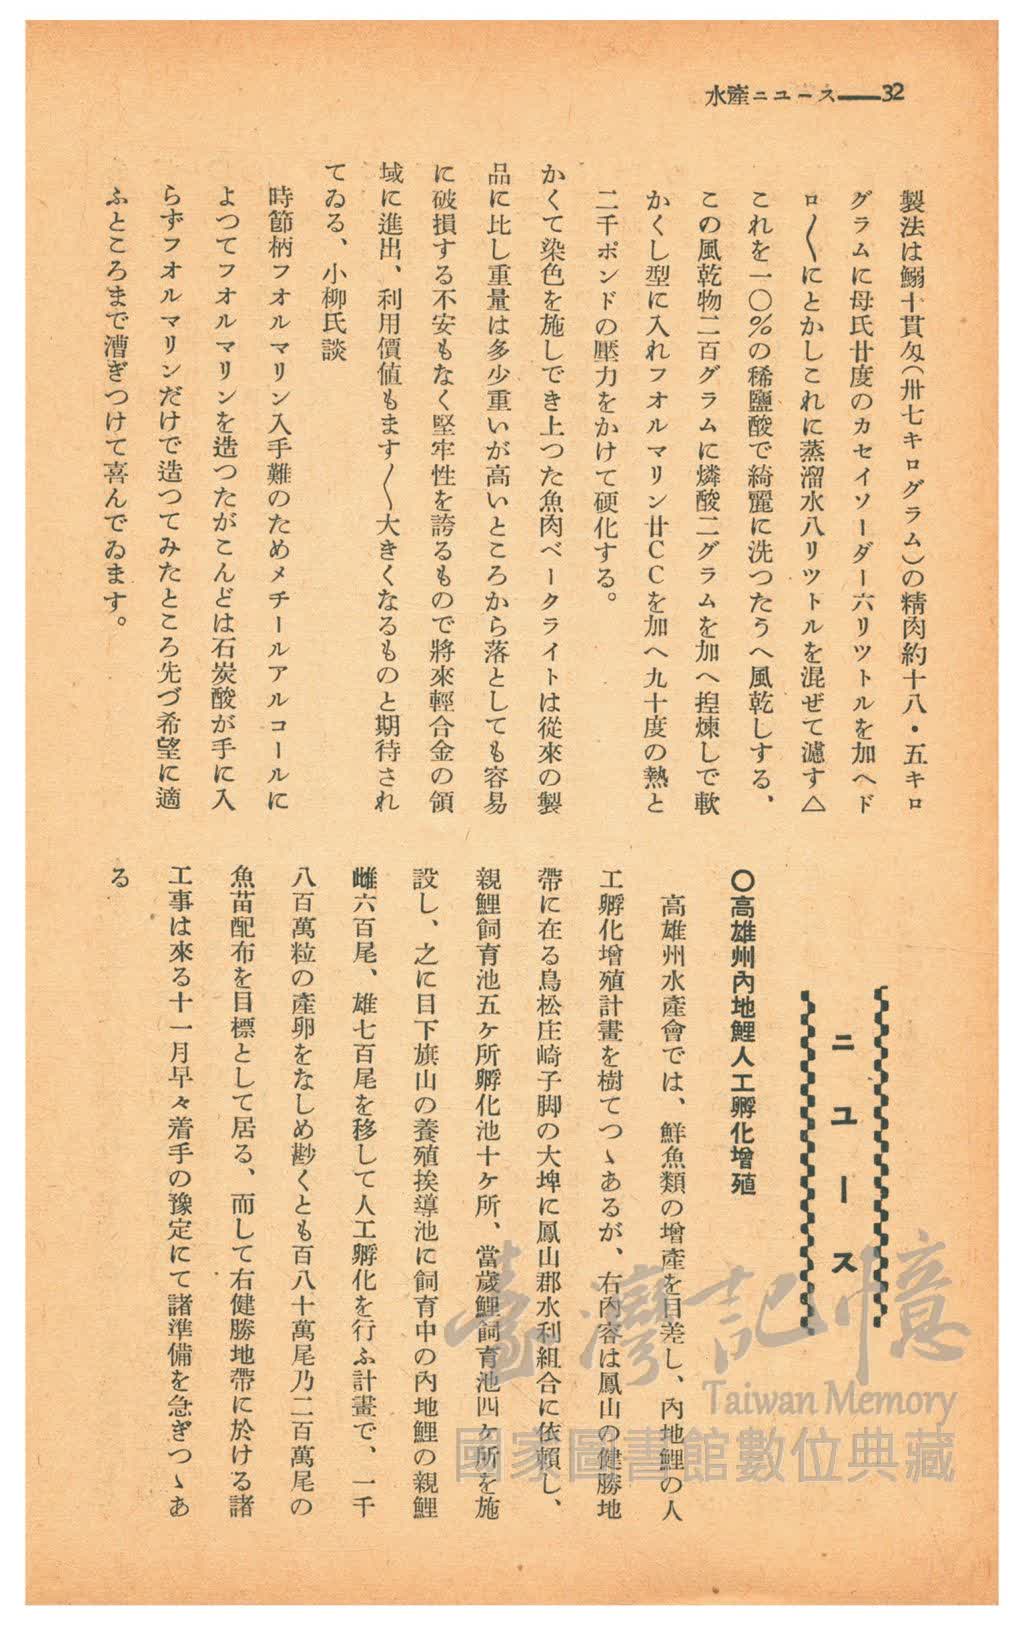 水產ニユース——32
製法は鰯十貫匁(卅七キログラム)の精肉約十八・五キロ
グラムに母氏廿度のカセイソーダー六リツトルを加へド
ロ〳〵にとかしこれに蒸溜水八リツトルを混ぜて濾す△
これを一〇%の稀鹽酸で綺麗に洗つたうへ風乾しする、
この風乾物二百グラムに燐酸二グラムを加へ揑煉しで軟
かくし型に入れフオルマリン廿CCを加へ九十度の熱と
二千ポンドの壓力をかけて硬化する。
かくて染色を施しでき上つた魚肉ベークライトは從來の製
品に比し重量は多少重いが高いところから落としても容易
に破損する不安もなく堅牢性を誇るもので將來輕合金の領
域に進出、利用價値もます〳〵大きくなるものと期待され
てゐる、小柳氏談
時節柄フオルマリン入手難のためメチールアルコールに
よつてフオルマリンを造つたがこんどは石炭酸が手に入
らずフオルマリンだけで造つてみたところ先づ希望に適
ふところまで漕ぎつけて喜んでゐます。
ニユース
〇高雄州內地鯉人工孵化增殖
高雄州水產會では、鮮魚類の增產を目差し、內地鯉の人
工孵化增殖計畫を樹てつゝあるが、右內容は鳳山の健勝地
帶に在る鳥松庄崎子脚の大埤に鳳山郡水利組合に依賴し、
親鯉飼育池五ケ所孵化池十ケ所、當歲鯉飼育池四ケ所を施
設し、之に目下旗山の養殖挨導池に飼育中の內地鯉の親鯉
雌六百尾、雄七百尾を移して人工孵化を行ふ計畫で、一千
八百萬粒の產卵をなしめ尠くとも百八十萬尾乃二百萬尾の
魚苗配布を目標として居る、而して右健勝地帶に於ける諸
工事は來る十一月早々着手の豫定にて諸準備を急ぎつゝあ
る
臺灣記憶
Taiwan Memory
國家圖書館數位典藏